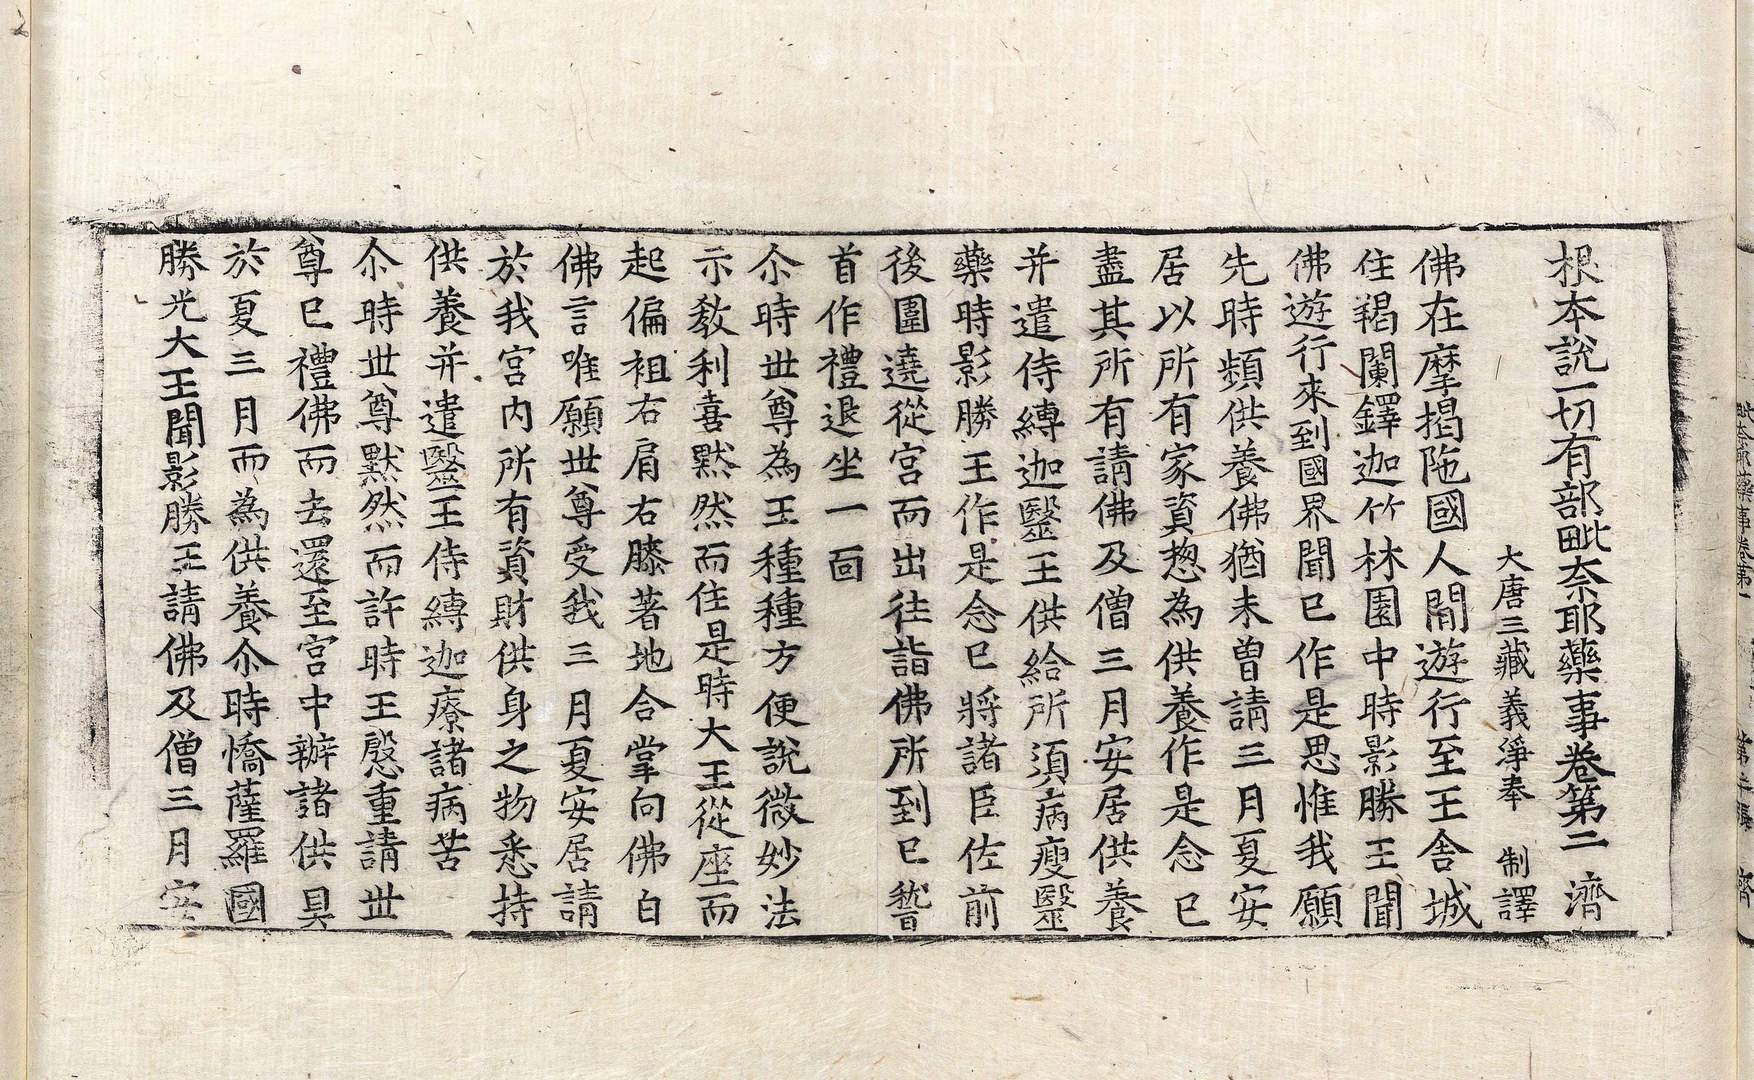 根本說一切有部毗奈耶藥事卷第二 濟
大唐三藏義淨奉 制譯
佛在摩揭陁國人閒遊行至王舍城
住羯闌鐸迦竹林園中時影勝王聞
佛遊行來到國界聞已作是思惟我願
先時頻供養佛猶未曾請三月夏安
居以所有家資惣為供養作是念已
盡其所有請佛及僧三月安居供養
并遣侍縛迦毉王供給所須病瘦毉
藥時影勝王作是念已將諸臣佐前
後圍遶從宮而出往詣佛所到已𥡴
首作禮退坐一面
尒時丗尊為王種種方便說微妙法
示教利喜默然而住是時大王從座而
起偏袒右肩右膝著地合掌向佛白
佛言唯願丗尊受我三月夏安居請
於我宮內所有資財供身之物悉持
供養并遣毉王侍縛迦療諸病苦
尒時丗尊默然而許時王慇重請丗
尊已禮佛而去還至宮中辦諸供具
於夏三月而為供養尒時憍薩羅國
勝光大王聞影勝王請佛及僧三月安